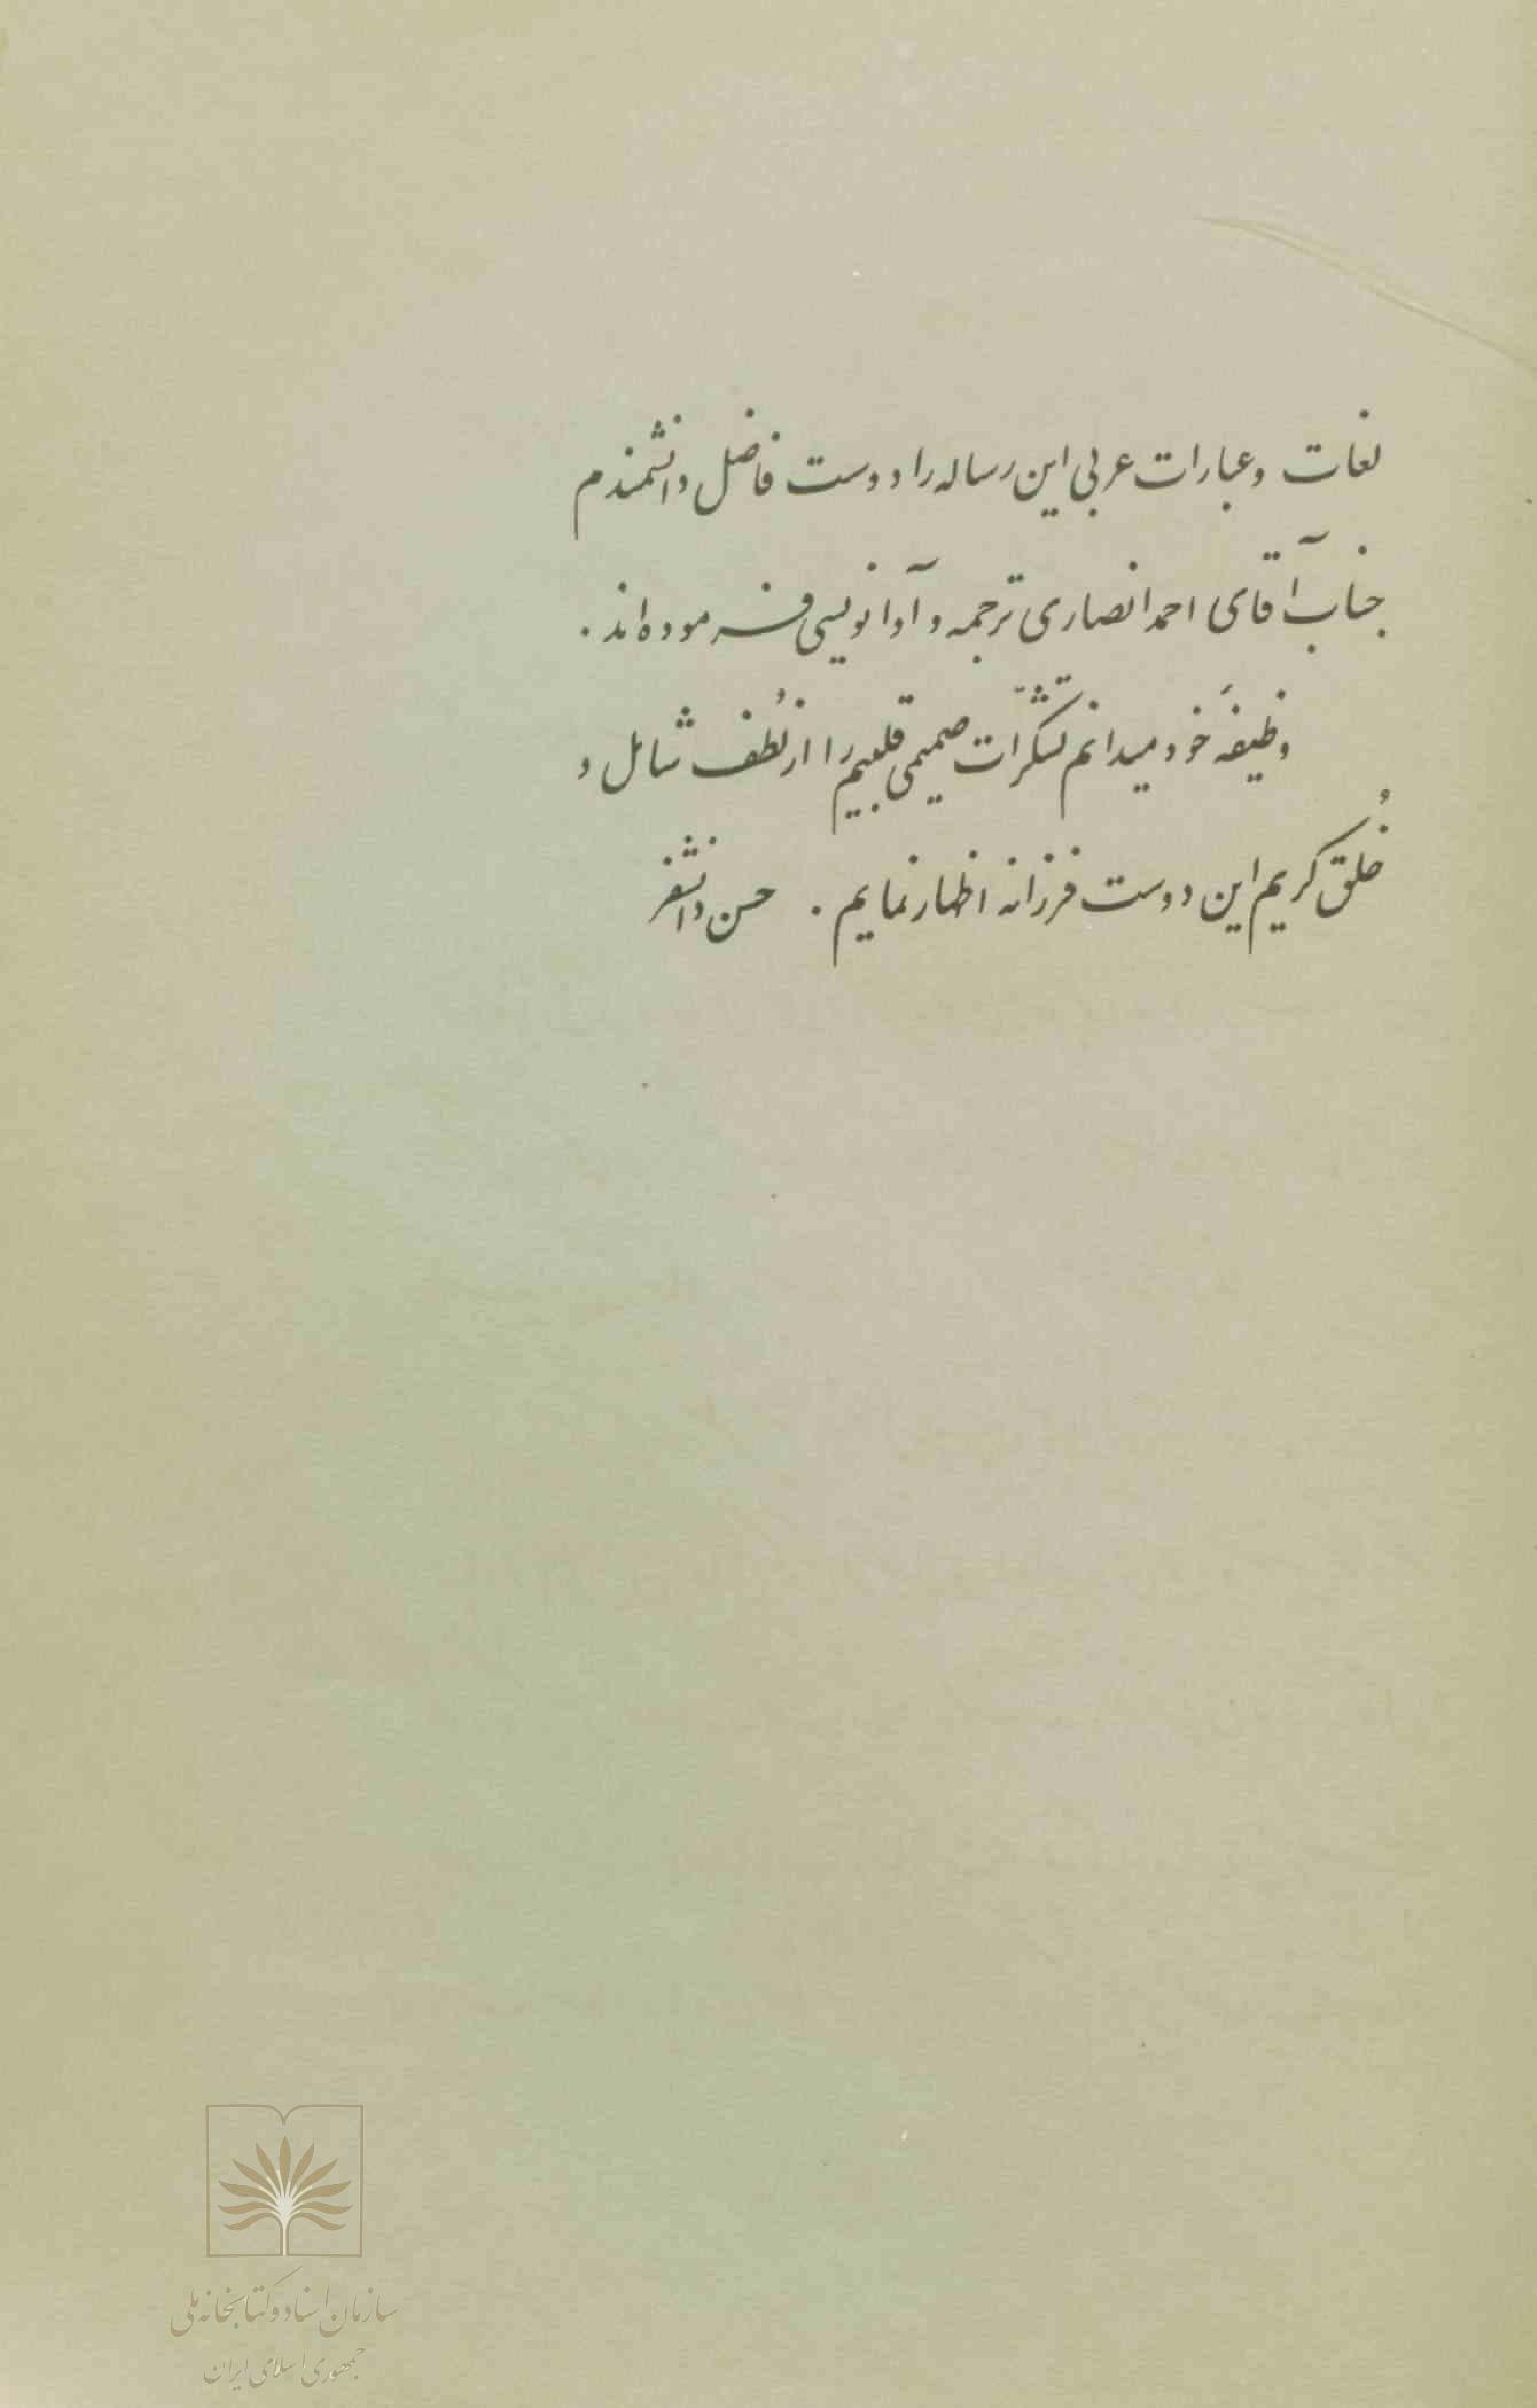 لغات و عبارات عربی این رساله را دوست فاضل دانشمندم
جناب آقای احمد انصاری ترجمه و آوانویسی فرموده‌اند.
وظیفهٔ خود میدانم تشکّرات صمیمی قلبیم را از لُطف شامل و
خُلق کریم این دوست فرزانه اظهار نمایم. حسن دانشفر
سازمان اسناد و کتابخانه ملی
جمهوری اسلامی ایران